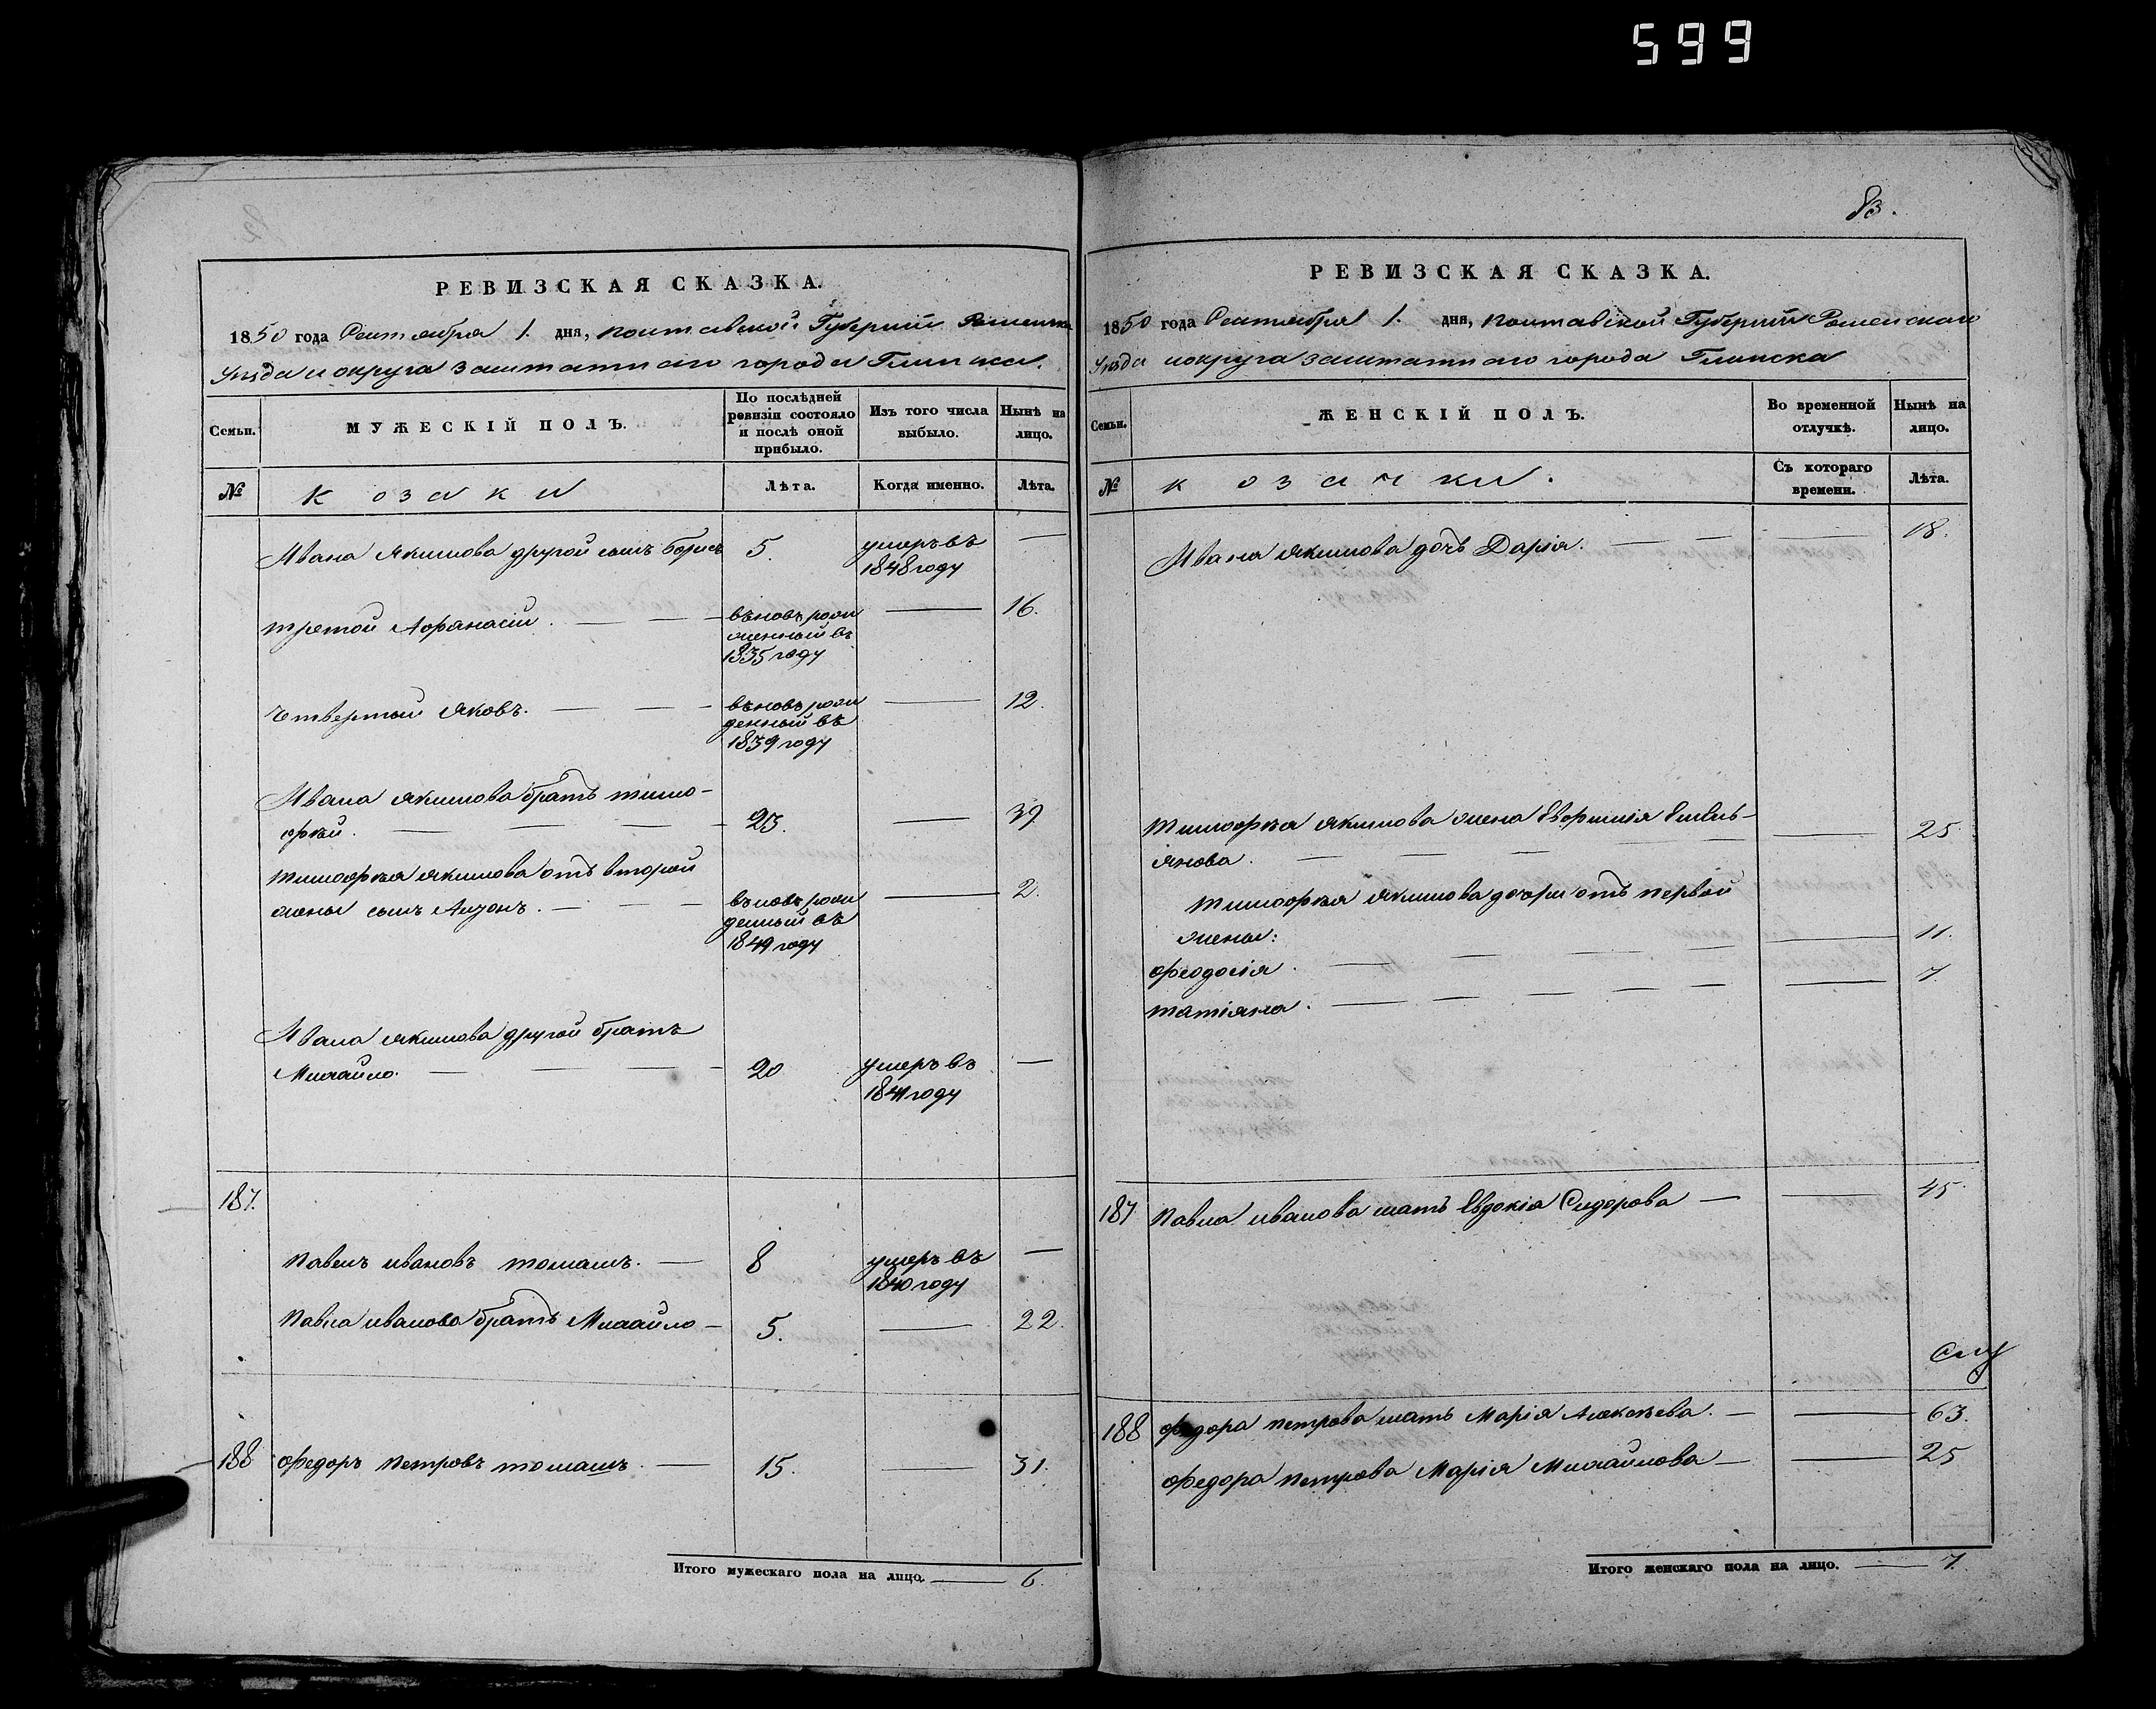 599
РЕВИЗСКАЯ СКАЗКА.
1850 года Сентября 1. дня, Полтавской Губерніи Роменскаго
Уезда и округа заштатнаго города Глинска.
Семьи.
МУЖЕСКІЙ ПОЛЪ.
По послѣдней ревизіи состояло и послѣ оной прибыло.
Изъ того числа выбыло.
Нынѣ на лицо.
№
Козаки
Лѣта.
Когда именно.
Лѣта.
Ивана Якимова другой сынъ Борисъ 5. умеръ въ —
1848 году
третой Афанасій. — — — вѣновь рож — 16.
женный въ
1835 году
четвертой Яковъ. — — — вѣновь рож — 12.
денный въ
1839 году
Ивана Якимова братъ Тимо-
фѣй. — — — 23. — 39
Тимофѣя Якимова отъ второй
жены сынъ — — — вѣновь рож — 2.
денный въ
1849 году
Ивана Якимова другой братъ
Михайло. — — — 20 умеръ въ —
1841 году
187.
Павелъ Ивановъ Толмачъ. — 8 умеръ въ —
1840 году
Павла Иванова братъ Михайло — 5. — 22.
188 Федоръ Петровъ Толмачъ. — 15. — 31.
Итого мужескаго пола на лицо. — 6.
83.
РЕВИЗСКАЯ СКАЗКА.
1850 года Сентября 1. дня, Полтавской Губерніи Роменскаго
Уезда и округа заштатнаго города Глинска
Семьи.
ЖЕНСКІЙ ПОЛЪ.
Во временной отлучкѣ.
Нынѣ на лицо.
№
Козачки.
Съ котораго времени.
Лѣта.
Ивана Якимова дочь Дарія. — — — 18.
Тимофѣя Якимова жена Евфимія Емель-
янова. — — — — 25
Тимофѣя Якимова дочери отъ первой
жены:
Феодосія. — — — — 11.
Татіяна. — — — — 7
187 Павла Иванова мать Евдокія Сидорова — — 45
188 Федора Петрова мать Марія Алексѣева. — — 63.
Федора Петрова Марія Михайлова — — 25
Итого женскаго пола на лицо. — 7.